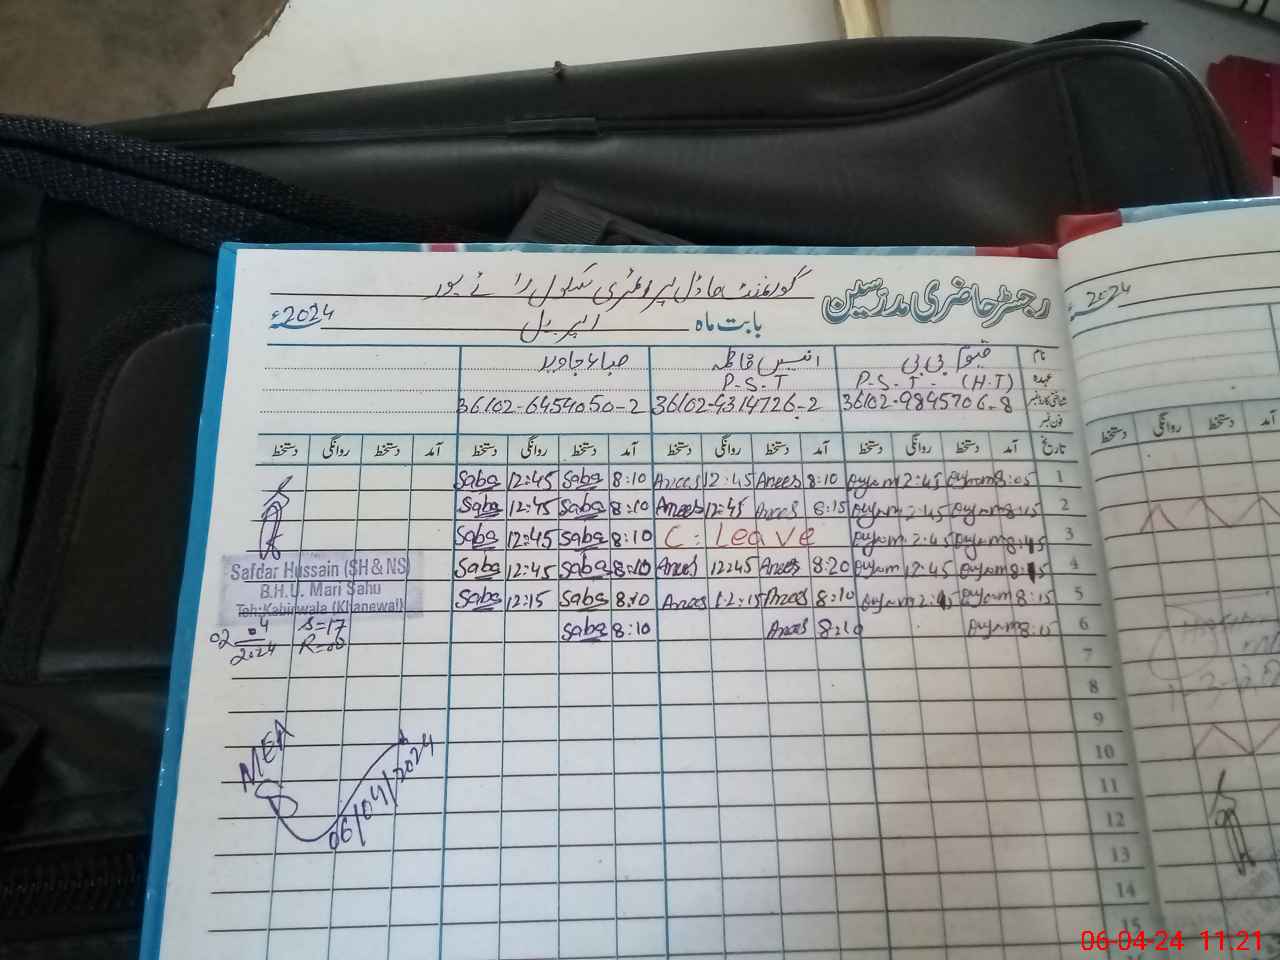 رجسٹر حاضری مدرسین گورنمنٹ ماڈل پرائمری سکول رائے پور
بابت ماہ اپریل 2024ء
نام قیوم بی بی انیس فاطمہ صباء جاوید
عہدہ P.S.T. (H.T) P.S.T
شناختی کارڈ نمبر 36102-9845706-8 36102-4314726-2 36102-6454050-2
فون نمبر
تاریخ آمد دستخط روانگی دستخط آمد دستخط روانگی دستخط آمد دستخط روانگی دستخط آمد دستخط روانگی دستخط
Saba 12:45 Saba 8:10 Anees 12:45 Anees 8:10 Quyum 2:45 Quyum 8:05 1
Saba 12:45 Saba 8:10 Anees 12:45 Anees 8:15 Quyum 2:45 Quyum 8:15 2
Saba 12:45 Saba 8:10 C. Leave Quyum 2:45 Quyum 8:15 3
Saba 12:45 Saba 8:10 Anees 12:45 Anees 8:20 Quyum 12:45 Quyum 8:15 4
Saba 12:15 Saba 8:10 Anees 12:15 Anees 8:10 Quyum Quyum 8:15 5
Saba 8:10 Anees 8:10 Quyum 8:15 6
7
8
9
10
11
12
13
14
15
Safdar Hussain (SH & NS)
B.H.U. Mari Sahu
Teh: Kabirwala (Khanewal)
02 04 2024
S=17
R=06
MEA
06/04/2024
2024ء
دستخط روانگی دستخط آمد
06-04-24 11.21